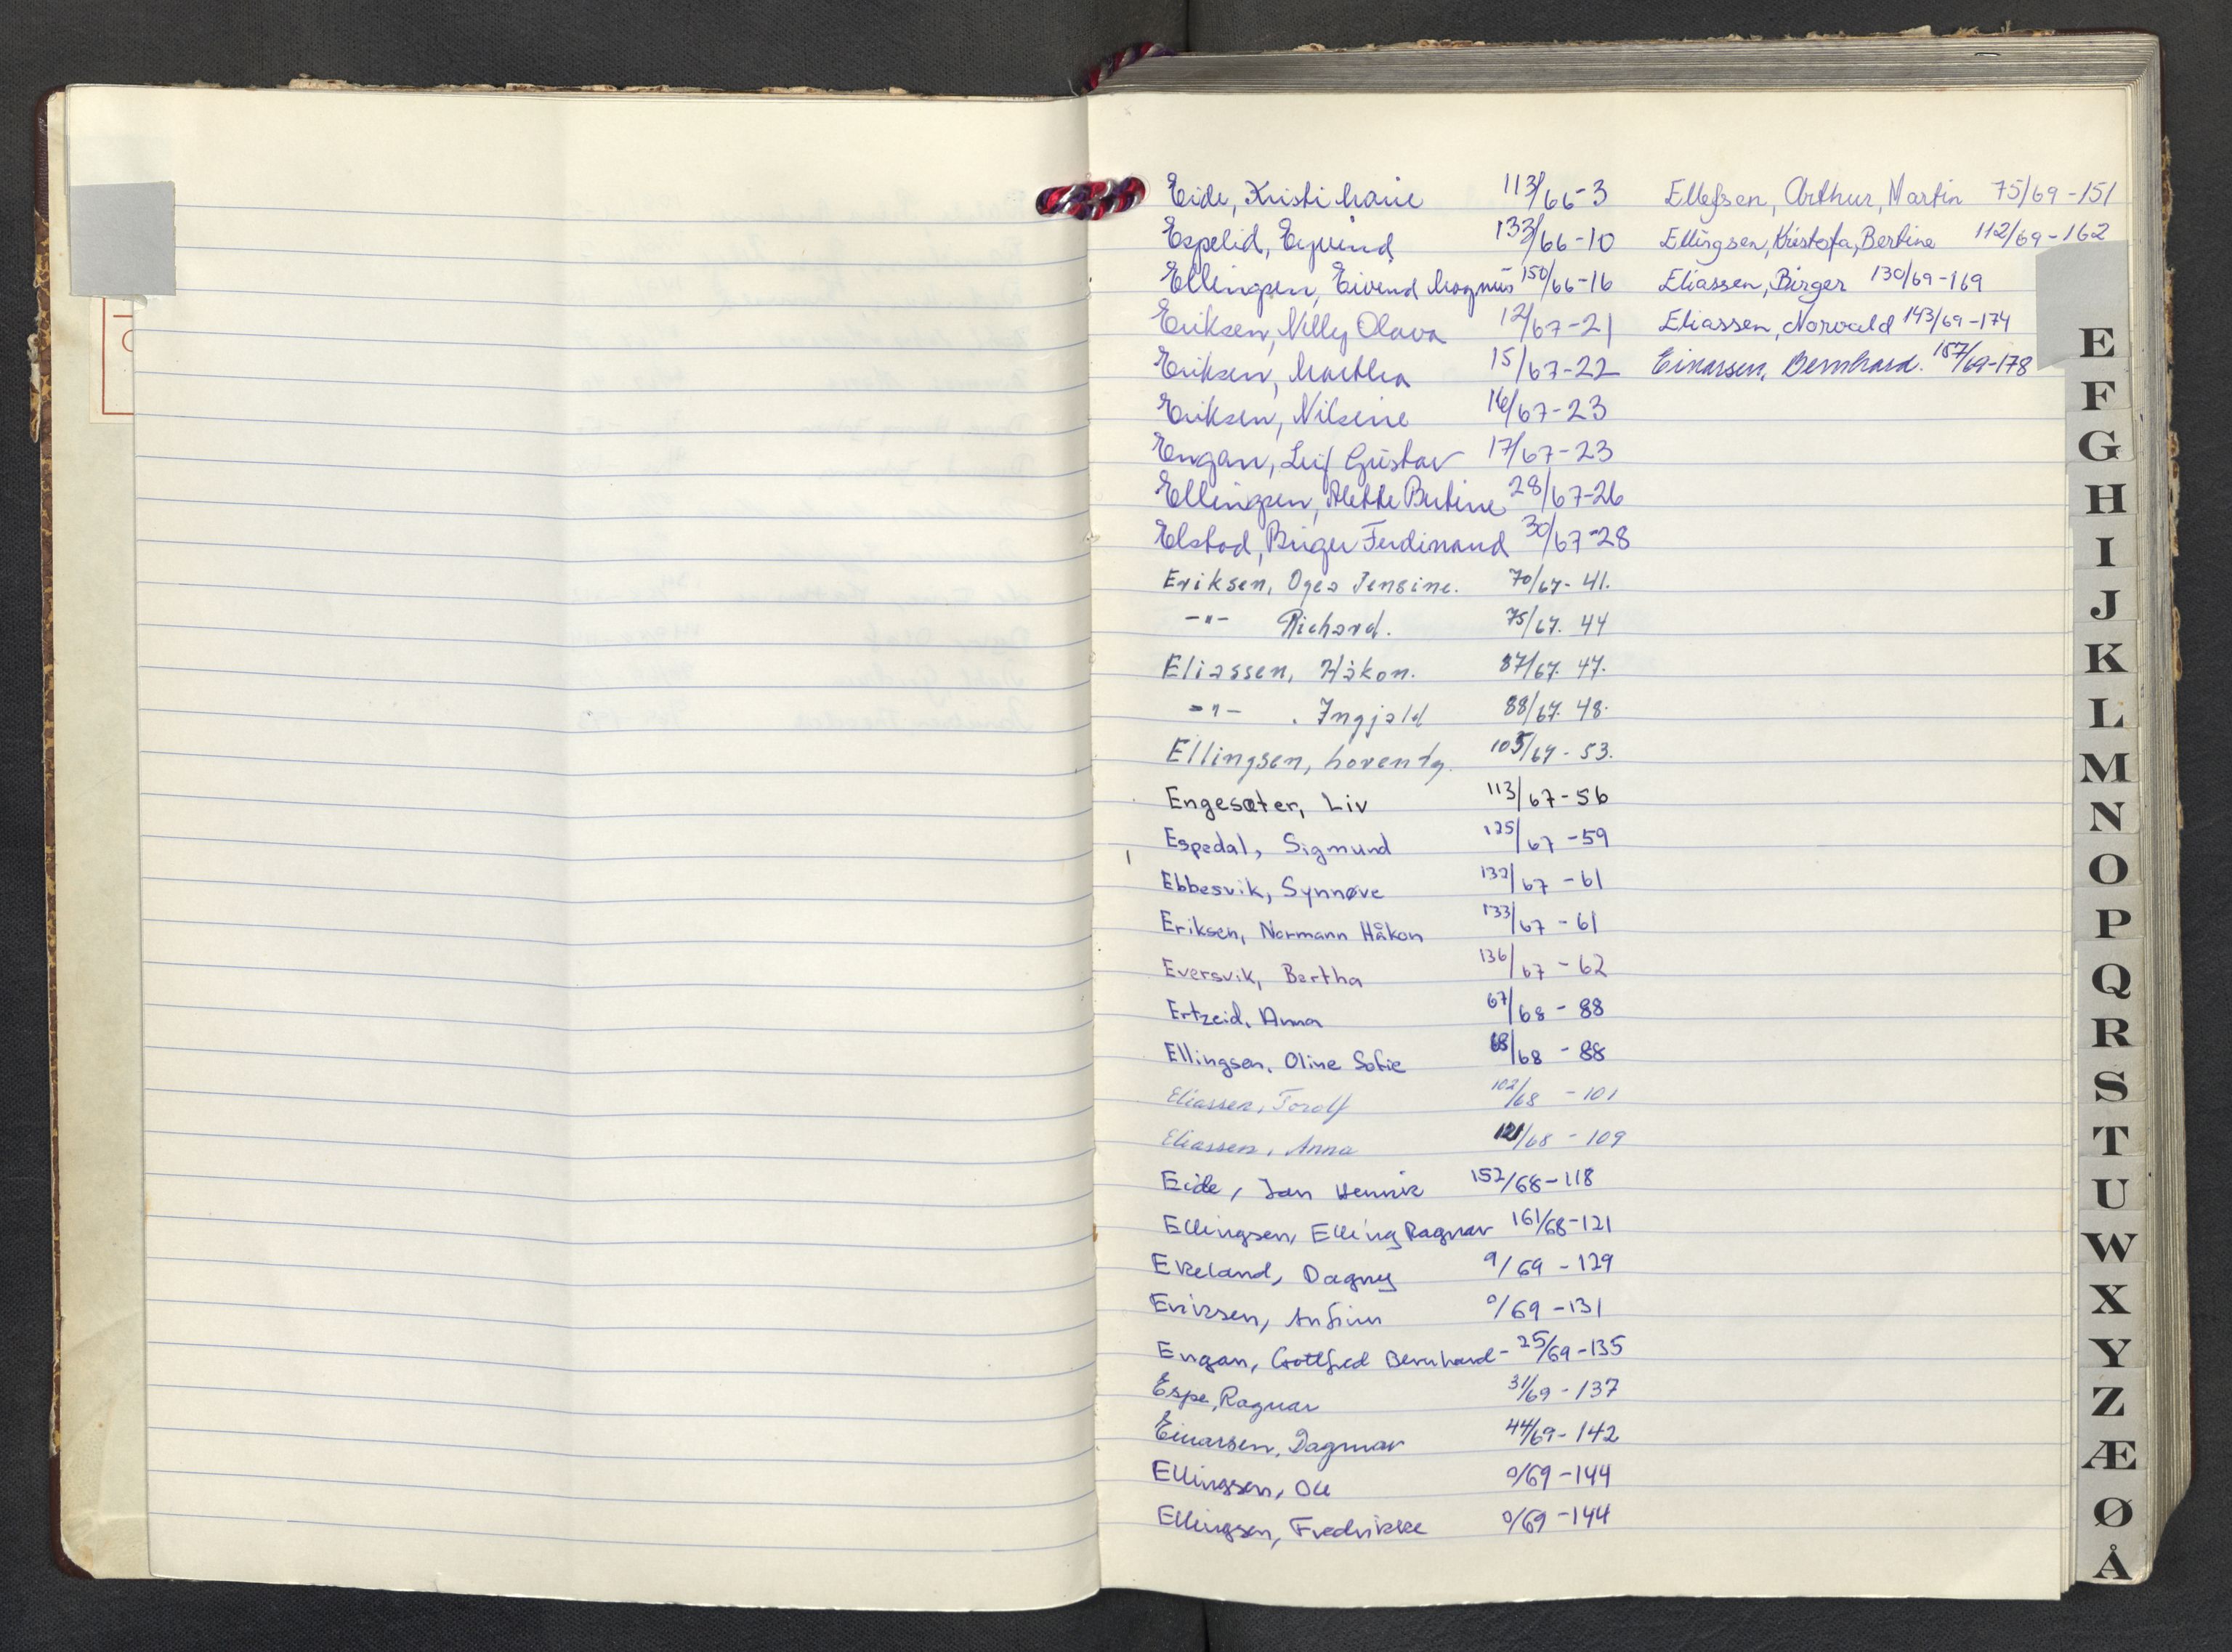 Eide, Kristi Marie 113/66-3
Espelid, Eyvind 133/66-10
Ellingsen, Eivind Magnus 150/66-16
Eriksen, Nelly Olava 12/67-21
Eriksen, Martha 15/67-22
Eriksen, Nilsine 16/67-23
Engan, Leif Gustav 17/67-23
Ellingsen, Alette Bertine 28/67-26
Elstad, Birger Ferdinand 30/67-28
Eriksen, Ogea Jensine. 70/67-41.
-"- Richard. 75/67. 44
Eliassen, Håkon. 87/67. 47.
-"- . Ingjald 88/67. 48.
Ellingsen, Lorentz. 105/67-53.
Engesæter, Liv 113/67-56
Espedal, Sigmund 125/67-59
Ebbesvik, Synnøve 132/67-61
Eriksen, Normann Håkon 133/67-61
Eversvik, Bertha 136/67-62
Ertzeid, Anna 67/68-88
Ellingsen, Oline Sofie 68/68-88
Eliassen, Torolf 102/68-101
Eliassen, Anna 121/68-109
Eide, Jan Henrik 152/68-118
Ellingsen, Elling Ragnar 161/68-121
Ekeland, Dagny 9/69-129
Eriksen, Anfinn 0/69-131
Engan, Gottfred Bernhard- 25/69-135
Espe, Ragnar 31/69-137
Einarsen, Dagmar 44/69-142
Ellingsen, Ole 0/69-144
Ellingsen, Fredrikke 0/69-144
Ellefsen, Arthur, Martin 75/69-151
Ellingsen, Kristofa, Bertine 112/69-162
Eliassen, Birger 130/69-169
Eliassen, Norvald 143/69-174
Einarsen, Bernhard. 157/69-178
E
F
G
H
I
J
K
L
M
N
O
P
Q
R
S
T
U
W
X
Y
Z
Æ
Ø
Å